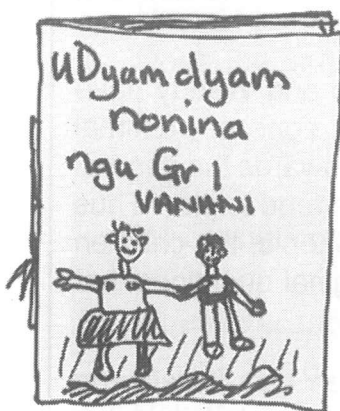 UDyamdyam
nonina
ngu Gr 1
VANANI